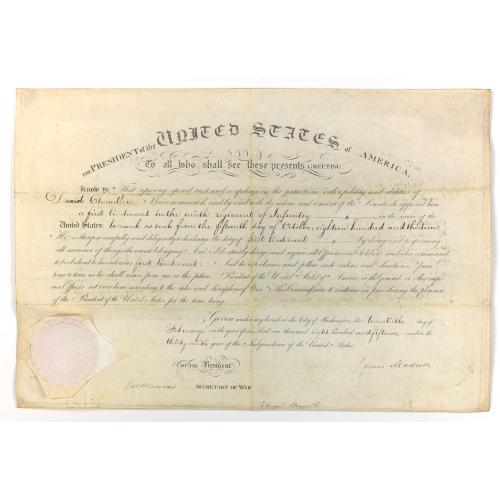 THE PRESIDENT of the UNITED STATES of AMERICA,
To all who shall see these presents GREETING:
Know Ye, That reposing special trust and confidence in the patriotism, valor, fidelity and abilities of
David Chandler, I have nominated, and by and with the advice and consent of the Senate, do appoint him
a first lieutenant in the ninth regiment of Infantry in the service of the
United States: to rank as such from the fifteenth day of October, eighteen hundred and thirteen:
He is therefore carefully and diligently to discharge the duty of first lieutenant by doing and performing
all manner of things thereunto belonging. And I do strictly charge, and require all Officers and Soldiers under his command
to be obedient to his orders as first lieutenant: And he is to observe and follow such orders and directions from
time to time as he shall receive from me or the future President of the United States of America, or the general or other superior
Officers set over him according to the rules and discipline of War. This Commission to continue in force during the pleasure
of the President of the United States for the time being.
Given under my hand at the City of Washington this twentieth day of
February in the year of our Lord one thousand eight hundred and fifteen, and in the
thirty ninth year of the Independence of the United States.
By the President
James Madison
SECRETARY OF WAR